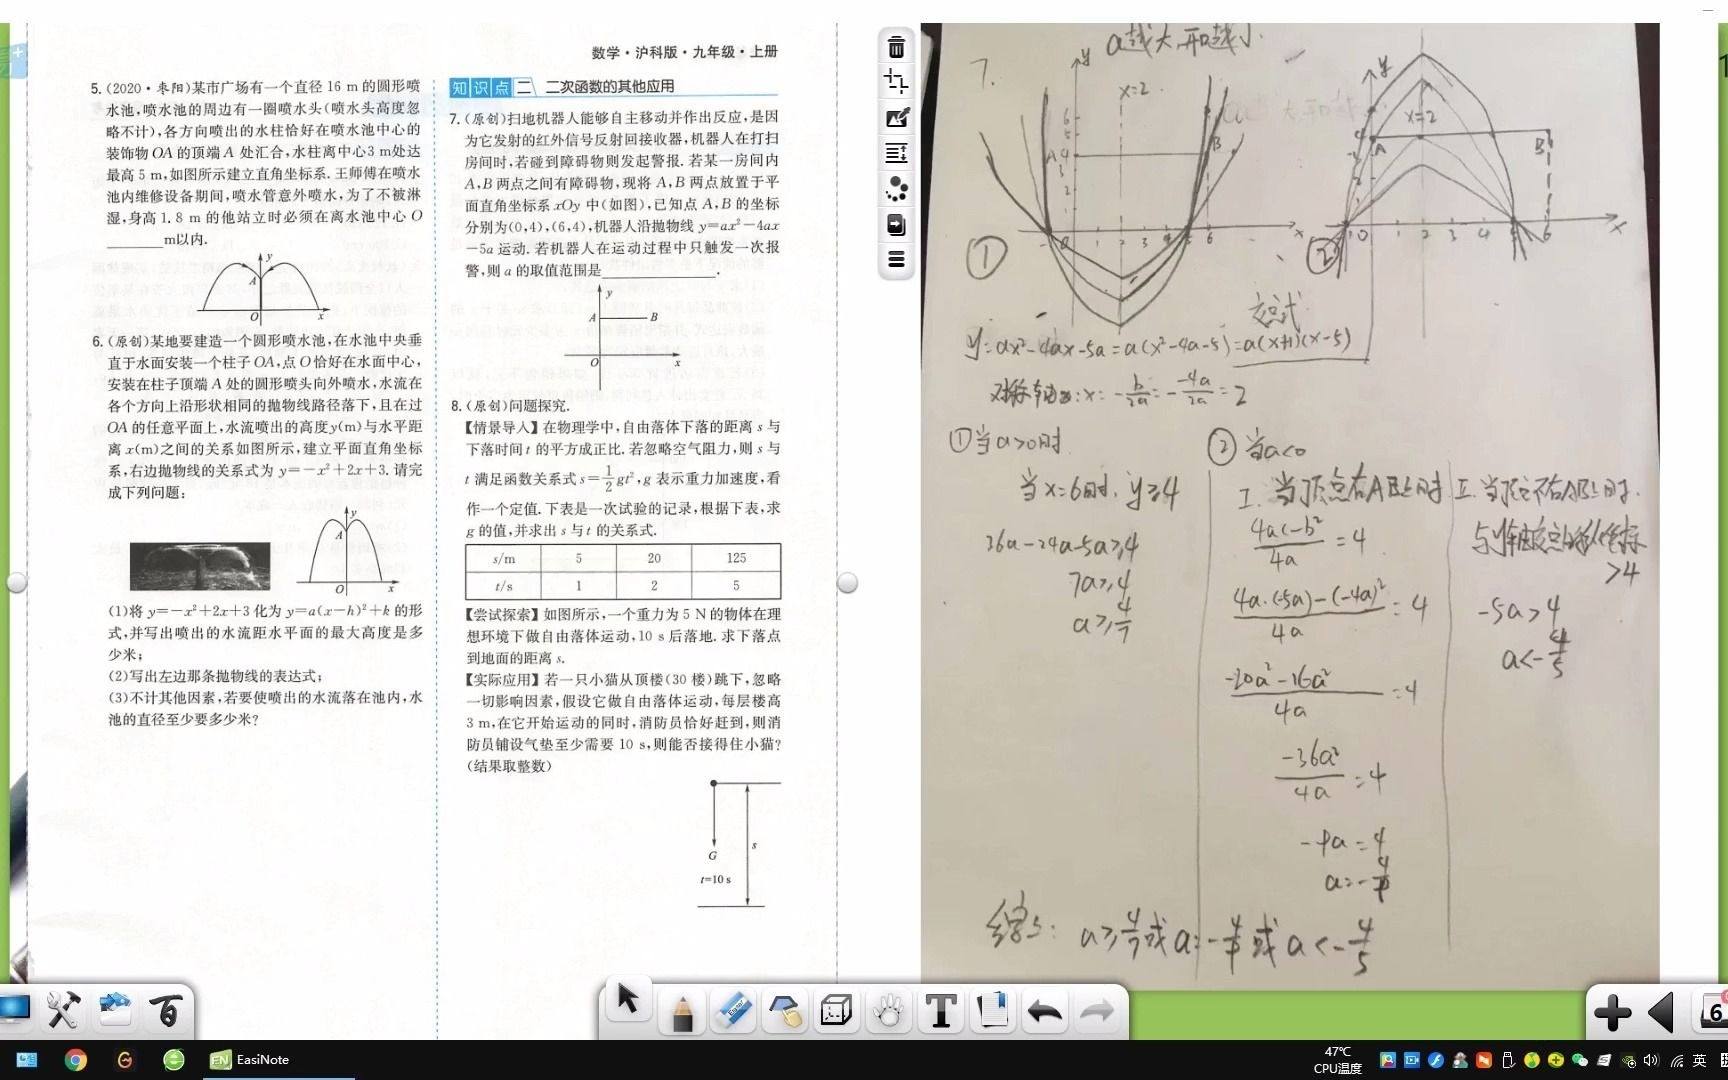 数学·沪科版·九年级·上册
5.(2020·枣阳)某市广场有一个直径 16 m 的圆形喷
水池,喷水池的周边有一圈喷水头(喷水头高度忽
略不计),各方向喷出的水柱恰好在喷水池中心的
装饰物 OA 的顶端 A 处汇合,水柱离中心3 m处达
最高 5 m,如图所示建立直角坐标系. 王师傅在喷水
池内维修设备期间,喷水管意外喷水,为了不被淋
湿,身高 1.8 m 的他站立时必须在离水池中心 O
________m以内.
y
A
O
x
6.(原创)某地要建造一个圆形喷水池,在水池中央垂
直于水面安装一个柱子 OA,点 O 恰好在水面中心,
安装在柱子顶端 A 处的圆形喷头向外喷水,水流在
各个方向上沿形状相同的抛物线路径落下,且在过
OA 的任意平面上,水流喷出的高度y(m)与水平距
离 x(m)之间的关系如图所示,建立平面直角坐标
系,右边抛物线的关系式为 y=-x²+2x+3. 请完
成下列问题:
y
A
O
x
(1)将 y=-x²+2x+3 化为 y=a(x-h)²+k 的形
式,并写出喷出的水流距水平面的最大高度是多
少米;
(2)写出左边那条抛物线的表达式;
(3)不计其他因素,若要使喷出的水流落在池内,水
池的直径至少要多少米?
知识点二 二次函数的其他应用
7.(原创)扫地机器人能够自主移动并作出反应,是因
为它发射的红外信号反射回接收器,机器人在打扫
房间时,若碰到障碍物则发起警报. 若某一房间内
A,B 两点之间有障碍物,现将 A,B 两点放置于平
面直角坐标系 xOy 中(如图),已知点 A,B 的坐标
分别为(0,4),(6,4),机器人沿抛物线 y=ax²-4ax
-5a 运动. 若机器人在运动过程中只触发一次报
警,则 a 的取值范围是______________.
y
A
B
O
x
8.(原创)问题探究.
【情景导入】在物理学中,自由落体下落的距离 s 与
下落时间 t 的平方成正比. 若忽略空气阻力,则 s 与
t 满足函数关系式 s=1/2gt²,g 表示重力加速度,看
作一个定值. 下表是一次试验的记录,根据下表,求
g 的值,并求出 s 与 t 的关系式.
s/m 5 20 125
t/s 1 2 5
【尝试探索】如图所示,一个重力为 5 N 的物体在理
想环境下做自由落体运动,10 s 后落地. 求下落点
到地面的距离 s.
【实际应用】若一只小猫从顶楼(30 楼)跳下,忽略
一切影响因素,假设它做自由落体运动,每层楼高
3 m,在它开始运动的同时,消防员恰好赶到,则消
防员铺设气垫至少需要 10 s,则能否接得住小猫?
(结果取整数)
G
s
t=10 s
a越大,开越小.
7.
y
x=2
A
B
x
①
y
x=2
A
B
x
②
交点式
y=ax²-4ax-5a=a(x²-4a-5)=a(x+1)(x-5)
对称轴为:x=-b/2a=--4a/2a=2
①当a>0时
当x=6时,y≥4
36a-24a-5a≥4
7a≥4
a≥4/7
②当a<0
I.当顶点在AB上时
4ac-b²/4a=4
4a·(-5a)-(-4a)²/4a=4
-20a²-16a²/4a=4
-36a²/4a=4
-9a=4
a=-4/9
II.当顶点不在AB上时.
与y轴交点的纵坐标
>4
-5a>4
a<-4/5
综上:a≥4/7或a=-4/9或a<-4/5
EasiNote
47℃
CPU温度
英